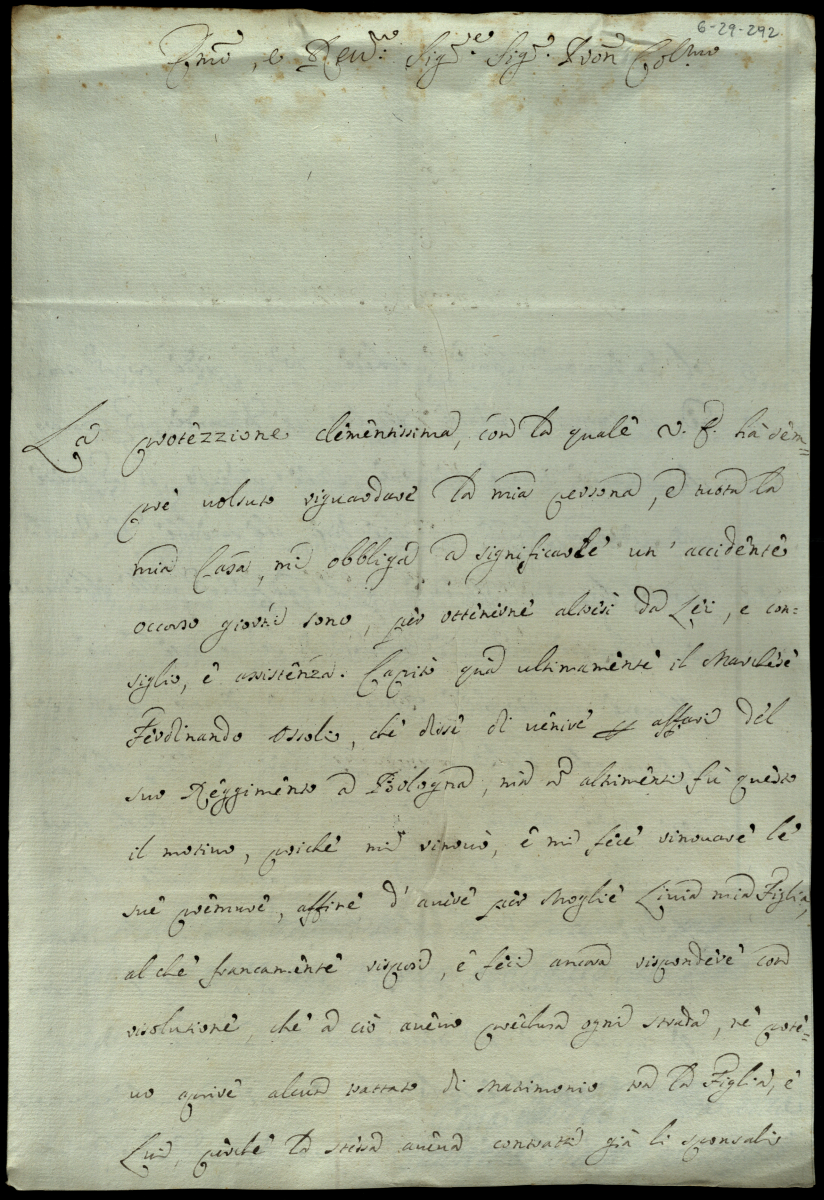 6-29-292
Emo, e Revmo: Sigre. Sigr. Pron Colmo
La protezzione clementissima, con la quale V. E. hà sem=
pre uolsuto riguardare la mia persona, e tutta la
mia Casa, mi obbliga a significarle un' accidente
occorso giorni sono, per ottenerne altresì da Lei, e con=
siglio, e assistenza. Capitò quà ultimamente il Marchese
Ferdinando Ossoli, che disse di uenire p affari del
suo Reggimento a Bologna, ma altrimenti fù questo
il motiuo, poiche mi rinouò, e mi fece rinouare le
sue premure, affine d' auere per Moglie Liuia mia Figlia,
al che francamente risposi, e feci ancora rispondere con
risolutione, che a ciò aueuo preclusa ogni strada, ne pote=
uo aprire alcun trattato di Matrimonio tra la Figlia, e
Lui, perche la stessa aueua contratti già li sponsali